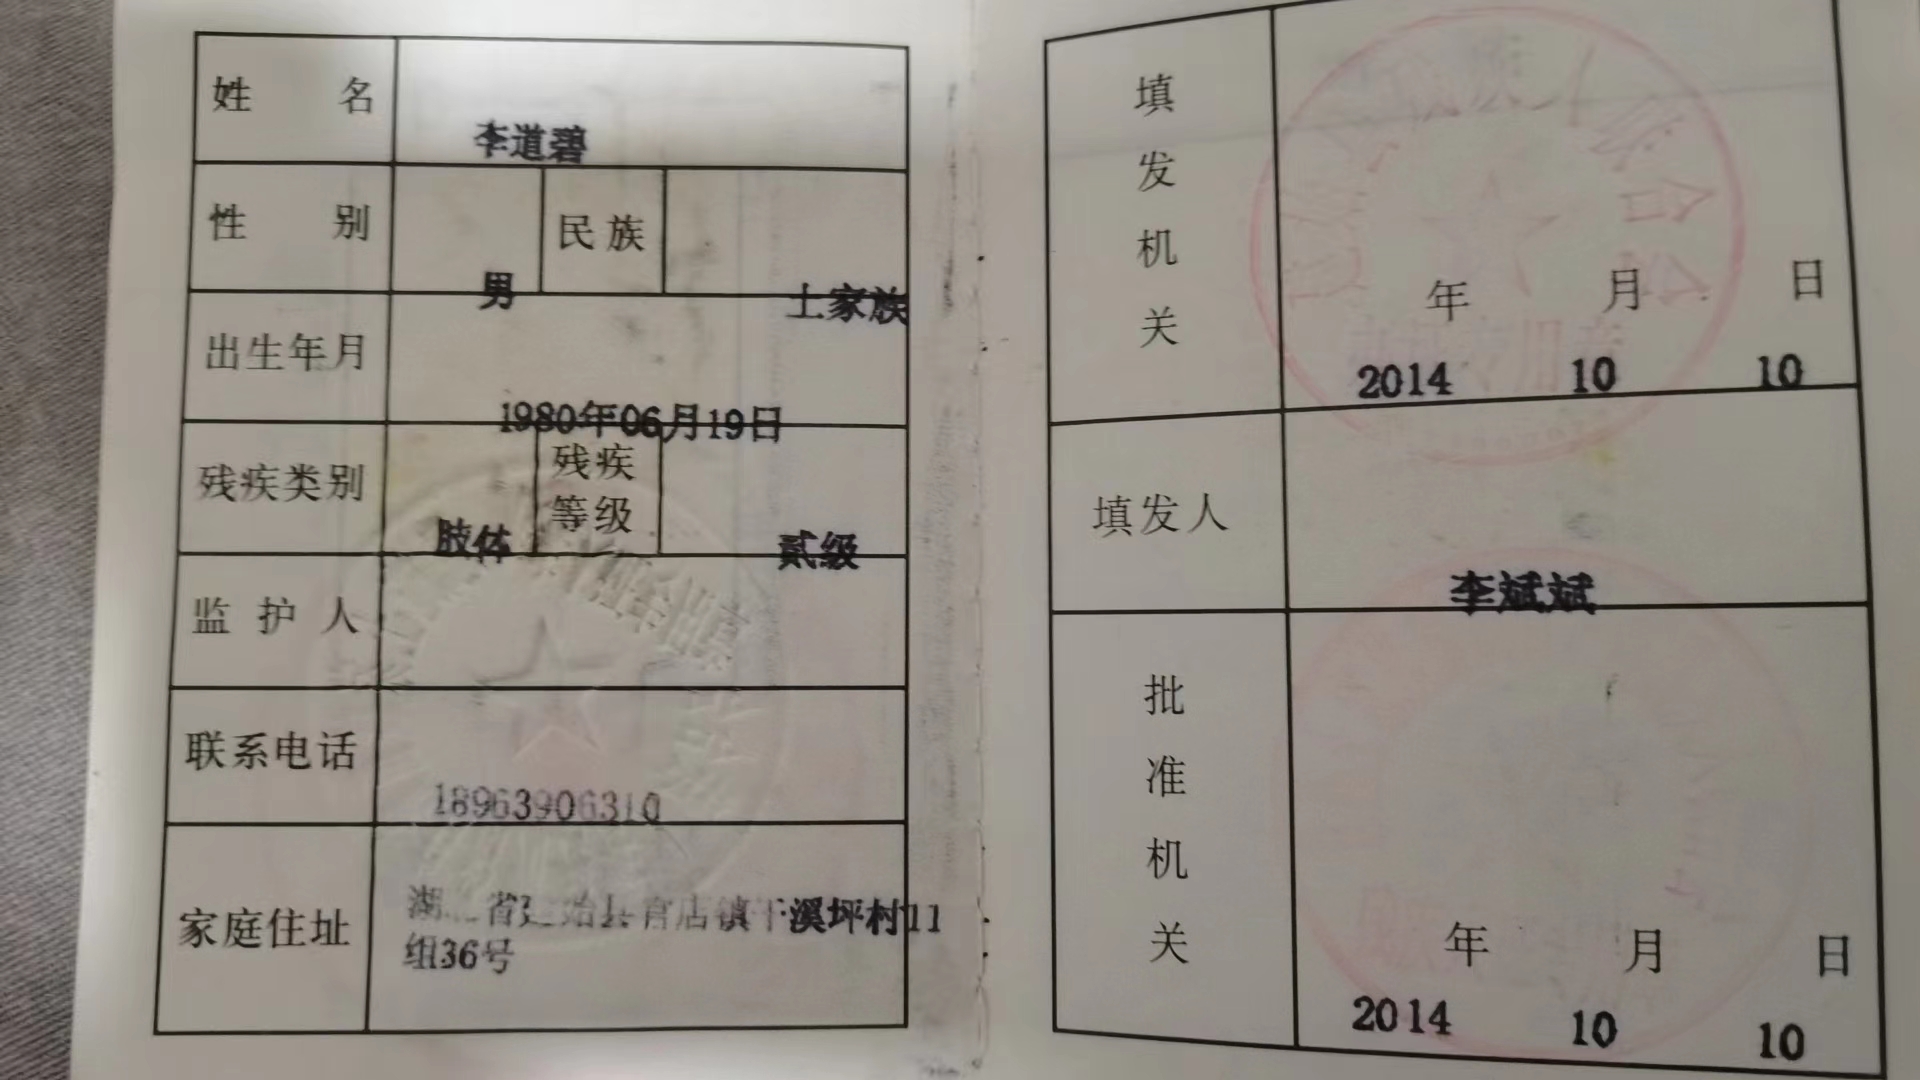 姓名
李道碧
性别
男
民族
土家族
出生年月
1980年06月19日
残疾类别
肢体
残疾
等级
贰级
监护人
联系电话
18963906310
家庭住址
湖 省建始县官店镇干溪坪村11
组36号
填发机关
年 月 日
2014 10 10
填发人
李斌斌
批准机关
年 月 日
2014 10 10